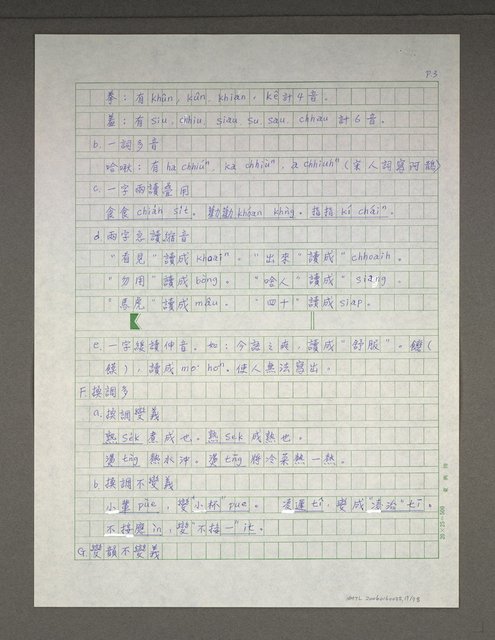 P.3
拳：有khûn, kûn, khian, kê計4音。
羞：有siu, chhiu, siau, su, sau, chhau 計6音。
b. 一詞多音
哈啾：有ha chhiùⁿ, ka chhiùⁿ, a chhiuhⁿ（宋人詞寫阿鵲）
c. 一字兩讀疊用
食食chiàh sit。勸勸khoan khǹg。指指kí cháiⁿ。
d. 兩字急讀縮音
"看見"讀成khoaiⁿ。"出來"讀成chhoaih。
"勿用"讀成bòng。"啥人"讀成siâng。
"馬虎"讀成mâu。"四十"讀成siap。
e. 一字緩讀伸音。如：今誌之爽，讀成"舒服"。鏝（
鏌），讀成mo· hoⁿ. 使人無法寫出。
F. 按調多
a. 按調變義
熟sék煮成也。熟sek成熟也。
燙tǹg熱水沖。燙tn̄g將冷菜熱一熱。
b. 按調不變義
小輩pùe，變"小杯"pue。凌遲tî，變成"凌治"tī。
不接應ìn，變"不接一"it。
G. 變韻不變義
20×25=500
NMTL 20060160022,17/28